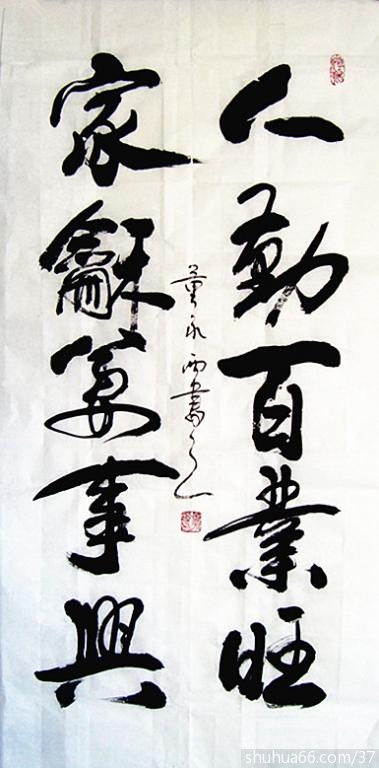 人勤百業旺
家龢萬事興
董永西書之
shuhua66.com/37